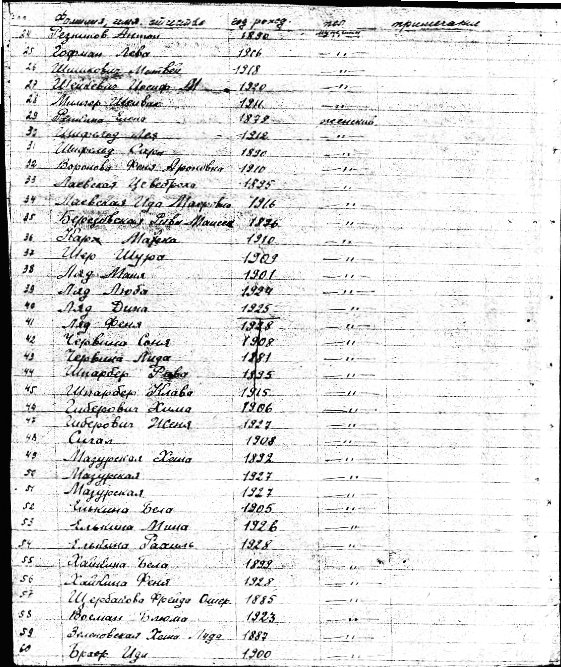 Фамилия, имя, отчество год рожд. пол примечания
24 Резников Антон 1890 мужской
25 Гофман Лева 1926 —"—
26 Матвей 1918 —"—
27 Иосиф М 1920 —"—
28 Мильгер 1911 —"—
29 Елена 1898 женский
Лея 1912 —"—
31 Сара 1890 —"—
32 Воронова Феня Ароновна 1910 —"—
33 Лаевская 1895 —"—
34 Маевская Ида Маеровна 1916 —"—
35 Рива Моисее 1896 —"—
36 Карх 1910 —"—
37 Шер Шура 1909 —"—
38 Ляд Маня 1901 —"—
39 Ляд Люба 1924 —"—
40 Ляд Дина 1925 —"—
41 Ляд Феня 1928 —"—
42 Червина Соня 1908 —"—
43 Червина Лида 1881 —"—
44 Шпарбер Рова 1895 —"—
45 Шпарбер Клава 1915 —"—
46 Гиберович Хима 1906 —"—
47 Гиберович Женя 1927 —"—
48 Сигал 1908 —"—
49 Мазурская Хана 1892 —"—
50 Мазурская 1927 —"—
51 Мазурская 1927 —"—
52 Елькина Бела 1905 —"—
53 Елькина Мина 1926 —"—
54 Елькина Рахиль 1928 —"—
55 Хайкина Бела 1899 —"—
56 Хайкина Феня 1928 —"—
57 Щербакова Фрейда Ошер. 1885 —"—
58 Восман Блюма 1923 —"—
59 Зелековская Хана Люда 1887 —"—
60 Ида 1900 —"—